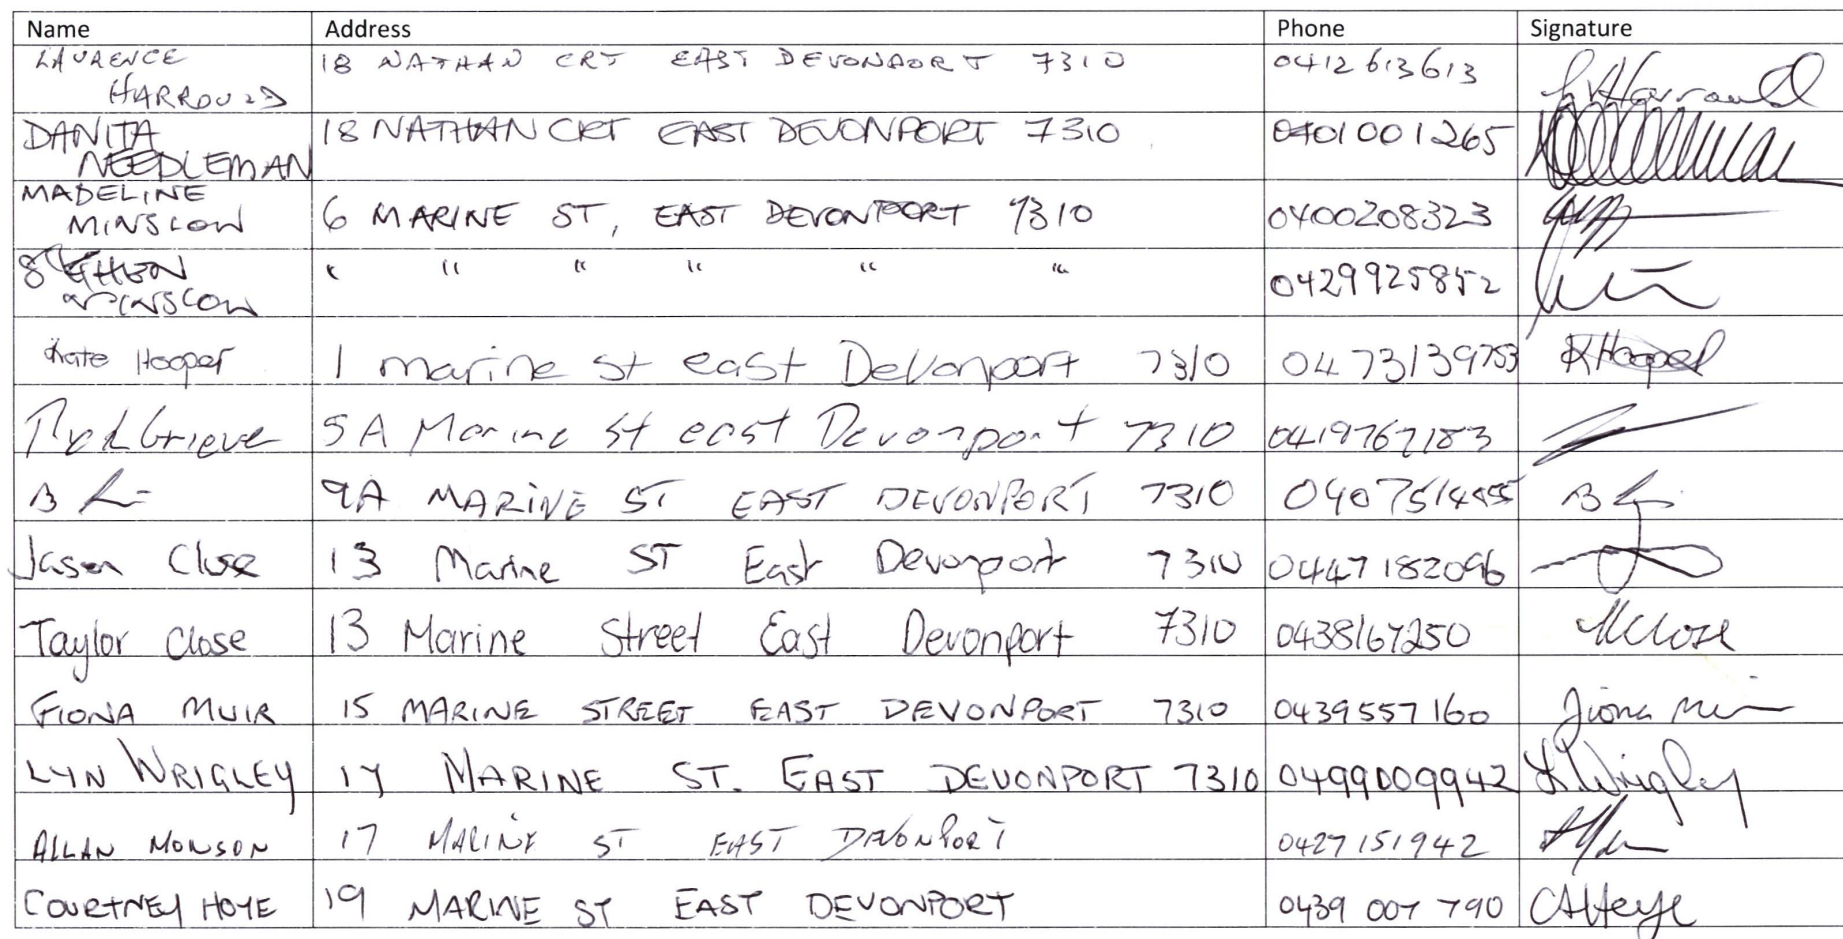 Name Address Phone Signature
LAURENCE HARROULD 18 NATHAN CRT EAST DEVONPORT 7310 0412613613
DANITA NEEDLEMAN 18 NATHAN CRT EAST DEVONPORT 7310 0401001265
MADELINE MINSLOW 6 MARINE ST, EAST DEVONPORT 7310 0400208323
MINSLOW " " " " " " 0429925852
Kate Hooper 1 marine st east Devonport 7310 0473139753 K Hooper
Grieve 5A Marine st east Devonport 7310 0419767183
B 9A MARINE ST EAST DEVONPORT 7310 B
Jason Close 13 Marine ST East Devonport 7310 0447182096
Taylor Close 13 Marine Street East Devonport 7310 0438167250 Close
FIONA MUIR 15 MARINE STREET EAST DEVONPORT 7310 0439557160 Fiona Muir
LYN WRIGLEY 17 MARINE ST. EAST DEVONPORT 7310 0499009942 L. Wrigley
ALLAN MONSON 17 MARINE ST EAST DEVONPORT 0427151942
COURTNEY HOYE 19 MARINE ST EAST DEVONPORT 0439 007 790 CAHoye